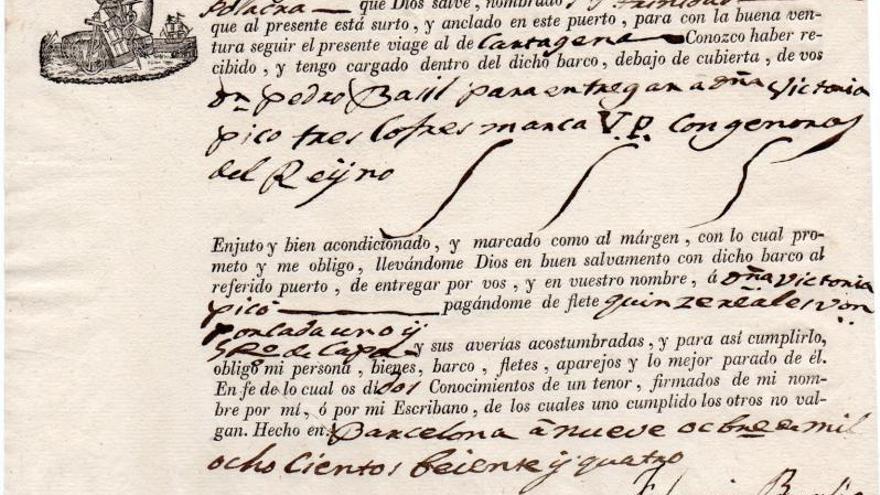 Polacra que Dios salve, nombrado
que al presente está surto, y anclado en este puerto, para con la buena ven-
tura seguir el presente viage al de Cartagena Conozco haber re-
cibido, y tengo cargado dentro del dicho barco, debajo de cubierta, de vos
Dn Pedro Basil para entregar a dña Victoria
pico tres Cofres marca V.P. Con generos
del Reyno
Enjuto y bien acondicionado, y marcado como al márgen, con lo cual pro-
meto y me obligo, llevándome Dios en buen salvamento con dicho barco al
referido puerto, de entregar por vos, y en vuestro nombre, á dña Victoria
pico pagándome de flete quinze reales von
por Cada uno y
5 Rs de Capa y sus averías acostumbradas, y para así cumplirlo,
obligo mi persona, bienes, barco, fletes, aparejos y lo mejor parado de él.
En fe de lo cual os di dos Conocimientos de un tenor, firmados de mi nom-
bre por mí, ó por mi Escribano, de los cuales uno cumplido los otros no val-
gan. Hecho en Barcelona á nueve octbre de mil
ocho Cientos beiente y quatro